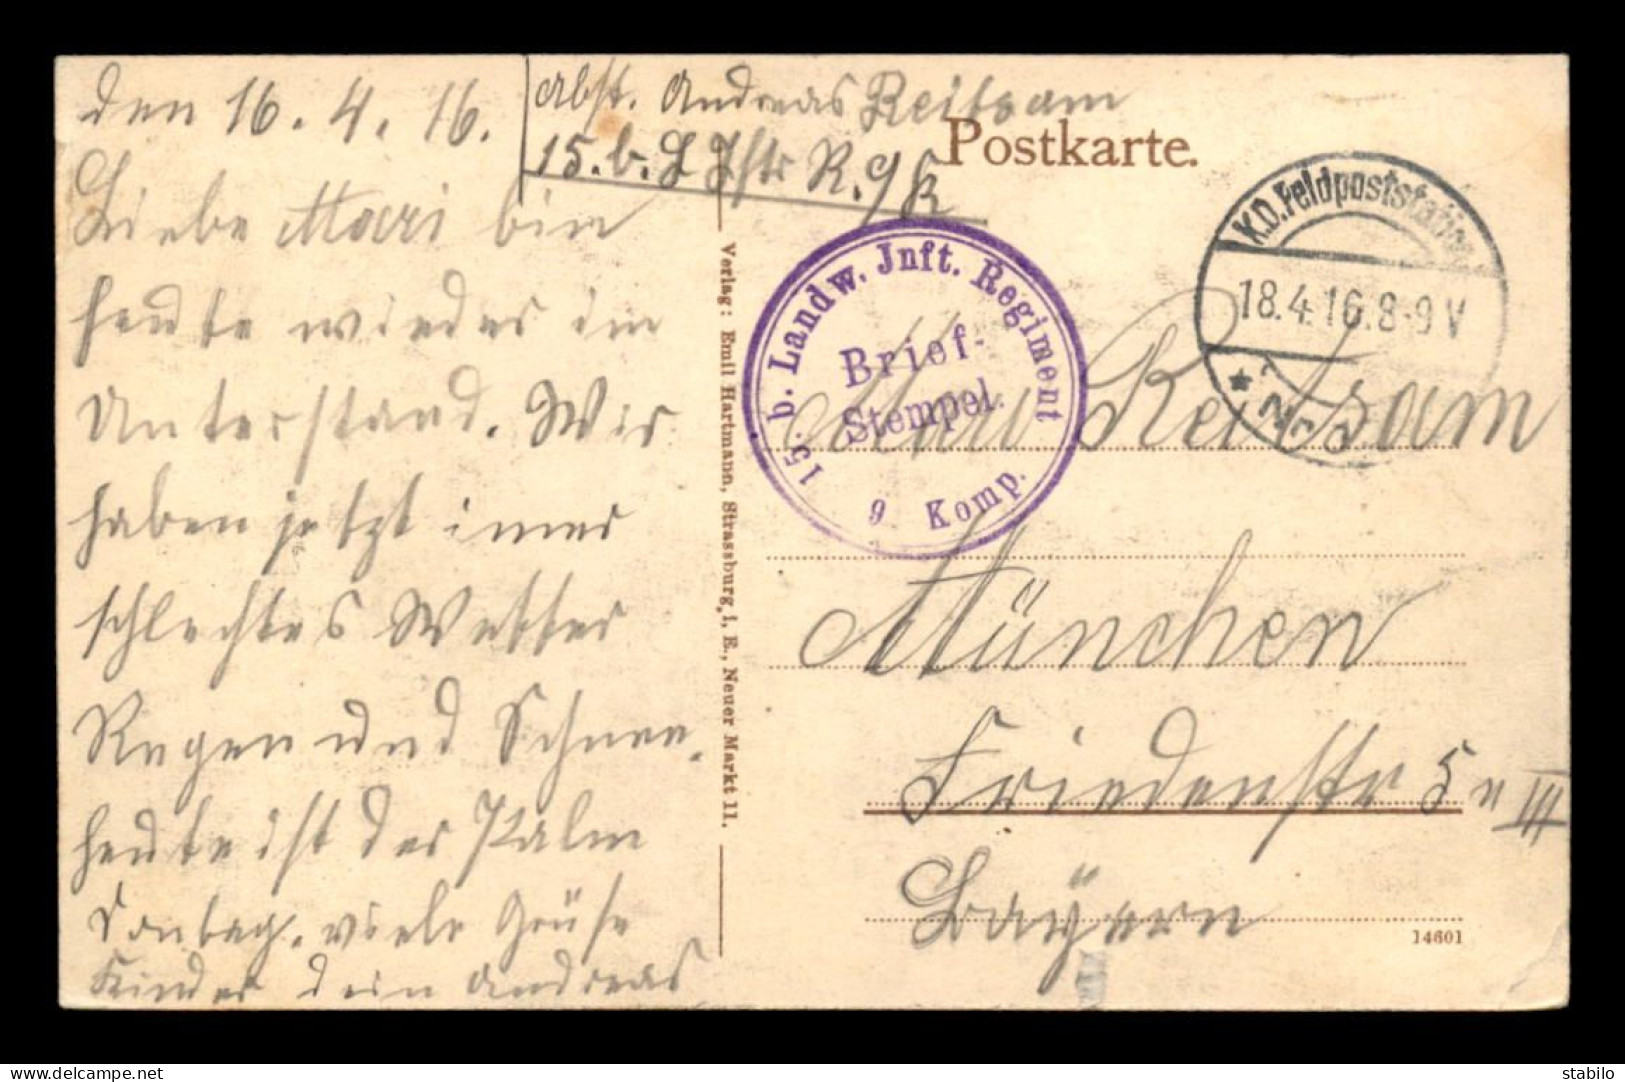 den 16.4.16.
Liebe Mari bin
heute wieder im
Unterstand. Wir
haben jetzt imer
schlechtes Wetter
Regen und Schnee.
heute ist der Palm
Sontag. viele Grüße
Kinder dein Andreas
Abst. Andreas Reitsam
15. b. L Iftr R. 9/K
Postkarte.
K.D. Feldpoststation
18.4.16. 8-9 V
* Nr.
15. b. Landw. Jnft. Regiment
Brief-
Stempel.
9 Komp.
Verlag: Emil Hartmann, Strassburg i. E., Neuer Markt 11.
Frau Reitsam
München
Friedenstr 5 III
Bayern
14601
www.delcampe.net
stabilo